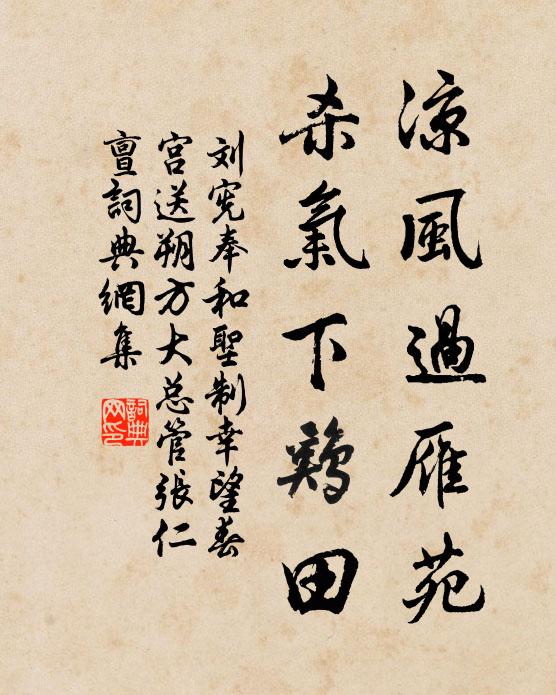 凉風過雁苑
杀氣下鷄田
刘宪奉和聖制幸望春
宫送朔方大总管張仁
亶詞典網集
詞典网印